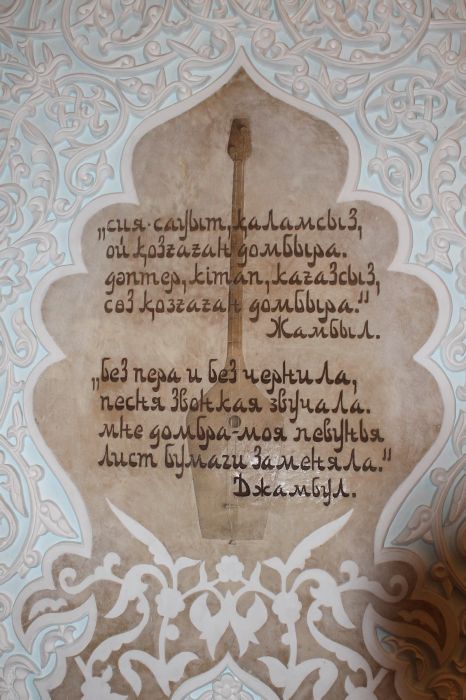 „сия-сауыт, қаламсыз,
ой қозғаған домбыра.
дәптер, кітап, кағазсыз,
сөз қозғаған домбыра."
Жамбыл.
„без пера и без чернила,
песня звонкая звучала.
мне домбра-моя певунья
лист бумаги заменяла."
Джамбул.